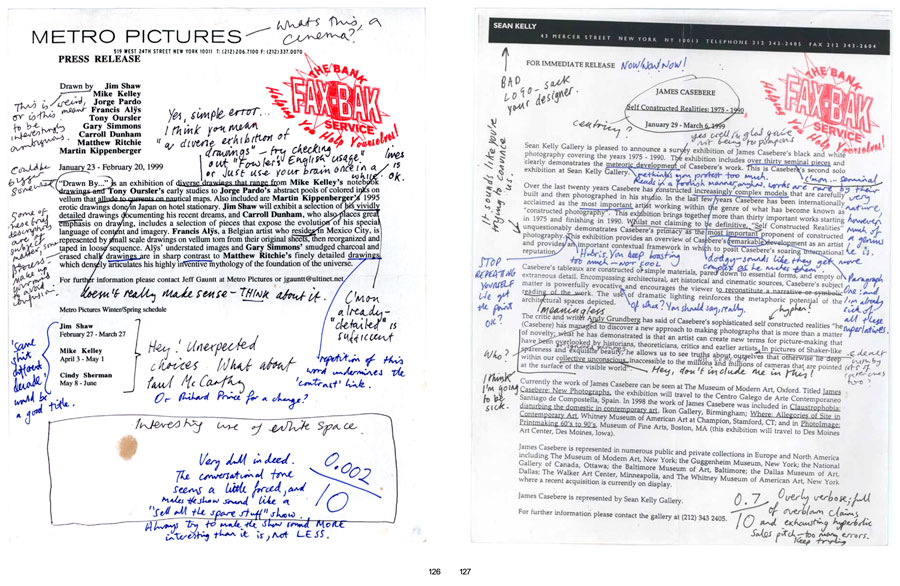 METRO PICTURES
whats this, a
cinema?
519 WEST 24TH STREET NEW YORK 10011 T: (212) 206.7100 F: (212) 337.0070
PRESS RELEASE
THE BANK
FAX-BAK
SERVICE
Helping You Help Yourselves!
Drawn by Jim Shaw
Mike Kelley
Jorge Pardo
Francis Alÿs
Tony Oursler
Gary Simmons
Carroll Dunham
Matthew Ritchie
Martin Kippenberger
This is weird,
or is this meant
to be
interestingly
ambiguous.
Yes, simple error...
I think you mean
"a diverse exhibition of
drawings" – try checking
out "Fowler's English Usage"
or Just use your brain once in a
while.
lives
is
OK.
January 23 - February 20, 1999
"Drawn By..." is an exhibition of diverse drawings that range from Mike Kelley's notebook
drawings and Tony Oursler's early studies to Jorge Pardo's abstract pools of colored oils on
vellum that allude to currents on nautical maps. Also included are Martin Kippenberger's 1995
erotic drawings done in Japan on hotel stationery. Jim Shaw will exhibit a selection of his vividly
detailed drawings documenting his recent dreams, and Carroll Dunham, who also places great
emphasis on drawing, includes a selection of pieces that expose the evolution of his special
language of content and imagery. Francis Alÿs, a Belgian artist who resides in Mexico City, is
represented by small scale drawings on vellum torn from their original sheets, then reorganized and
taped in loose sequence. Alÿs' understated images and Gary Simmons' smudged charcoal and
erased chalk drawings are in sharp contrast to Matthew Ritchie's finely detailed drawings,
which densely articulates his highly inventive mythology of the foundation of the universe.
Some of
these brief
descriptions
are a
make it
sound
For further information please contact Jeff Gauntt at Metro Pictures or jgauntt@ultinet.net.
doesn't really made sense – THINK about it.
Metro Pictures Winter/Spring schedule
Jim Shaw
February 27 - March 27
Mike Kelley
April 3 - May 1
Cindy Sherman
May 8 - June
'Same
shit
different
decade'
would be
a good title.
Hey! Unexpected
choices What about
Paul McCarthy
Or Richard Prince for a change?
C'mon
already-
"detailed" is
sufficient
repetition of this
word undermines the
'contrast' link.
Interesting use of white space.
Very dull indeed.
The conversational tone
seems a little forced, and
makes the show sound like a
"sell all the spare stuff" show.
Always try to make the show sound MORE
interesting than it is, not LESS.
0.002
10
126
SEAN KELLY
43 MERCER STREET NEW YORK NY 10013 TELEPHONE 212 343-2405 FAX 212 343-2604
FOR IMMEDIATE RELEASE
Now Now Now!
THE BANK
FAX-BAK
SERVICE
Helping You Help Yourselves!
BAD
LOGO – sack
your designer.
JAMES CASEBERE
Self Constructed Realities: 1975 - 1990
January 29 - March 6, 1999
centring?
It sounds like you're
trying to convince
us.
Sean Kelly Gallery is pleased to announce a survey exhibition of James Casebere's black and white
photography covering the years 1975 - 1990. The exhibition includes over thirty seminal pieces and
clearly demonstrates the meteoric development of Casebere's work. This is Casebere's second solo
exhibition at Sean Kelly Gallery.
methinks you protest too much.
Over the last twenty years Casebere has constructed increasingly complex models that are carefully
built and then photographed in his studio. In the last few years Casebere has been internationally
acclaimed as the most important artist working within the genre of what has become known as
"constructed photography". This exhibition brings together more than thirty important works starting
in 1975 and finishing in 1990. Whilst not claiming to be definitive, "Self Constructed Realities"
unquestionably demonstrates Casebere's primacy as the most important proponent of constructed
photography. This exhibition provides an overview of Casebere's remarkable development as an artist
and provides an important contextual framework in which to posit Casebere's soaring international
reputation.
STOP
REPEATING
YOURSELF
We get
the point
OK?
Hubris. You keep boasting
too much – not cool
dodgy – sounds like they get more
complex as he makes them
Casebere's tableaux are constructed of simple materials, pared down to essential forms, and empty of
extraneous detail. Encompassing architectural, art historical and cinematic sources, Casebere's subject
matter is powerfully evocative, and encourages the viewer to reconstitute a narrative or symbolic
reading of the work. The use of dramatic lighting reinforces the metaphoric potential of the
architectural spaces depicted.
of what? You should say, really.
hyphen!
meaningless
Paragraph
one: and
I'm already
sick of
all these
superlatives.
The critic and writer Andy Grundberg has said of Casebere's sophisticated self constructed realities "he
(Casebere) has managed to discover a new approach to making photographs that is more than a matter
of novelty; what he has demonstrated is that an artist can create new terms for picture-making that
have been overlooked by historians, theoreticians, critics and earlier artists. In pictures of Shaker-like
spareness and exquisite beauty, he allows us to see truths about ourselves that otherwise lie deep
within our collective unconscious, inaccessible to the millions and millions of cameras that are pointed
at the surface of the visible world".
Who?
Hey, don't include me in this!
I think
I'm going
to be
sick.
Currently the work of James Casebere can be seen at The Museum of Modern Art, Oxford. Titled James
Casebere: New Photographs, the exhibition will travel to Centro Galego de Arte Contemporáneo
Santiago de Compostela, Spain. In 1998 the work of James Casebere was included in Claustrophobia:
disturbing the domestic in contemporary art, Ikon Gallery, Birmingham; Where: Allegories of Site in
Contemporary Art, Whitney Museum of American Art at Champion, Stamford, CT; and in PhotoImage:
Printmaking 60's to 90's, Museum of Fine Arts, Boston, MA (this exhibition will travel to Des Moines
Art Center, Des Moines, Iowa).
James Casebere is represented in numerous public and private collections in Europe and North America
including The Museum of Modern Art, New York; the Guggenheim Museum, New York; the National
Gallery of Canada, Ottawa; the Baltimore Museum of Art, Baltimore; the Dallas Museum of Art,
Dallas; The Walker Art Center, Minneapolis, and The Whitney Museum of American Art, New York
where a recent acquisition is currently on display.
James Casebere is represented by Sean Kelly Gallery.
For further information please contact the gallery at (212) 343 2405.
0.7
10
Overly verbose; full
of overblown claims
and exhausting hyperbolic
sales pitch – too many errors.
Keep trying
127